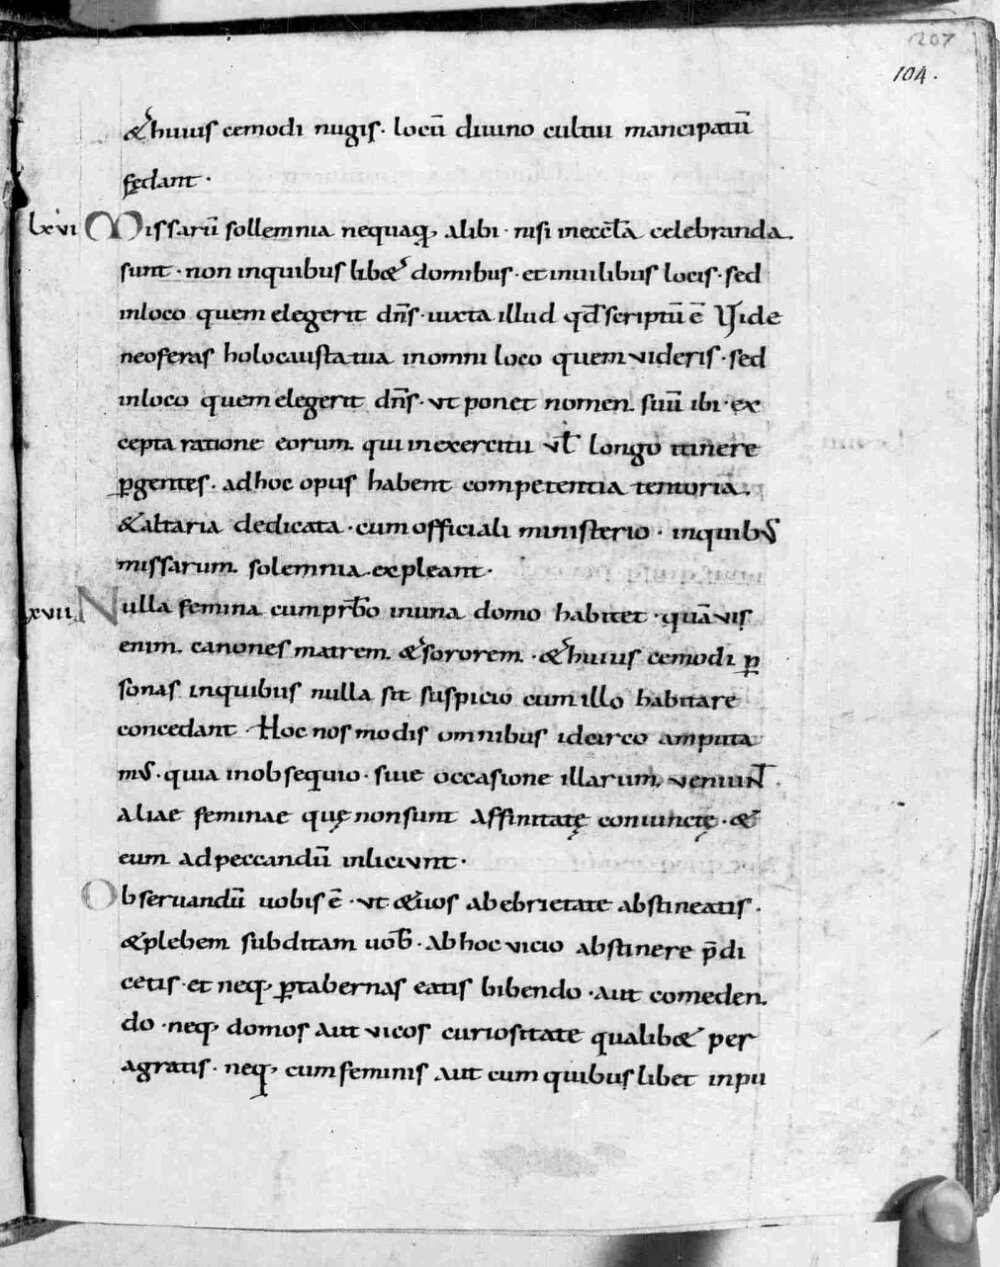 207
104.
& huius cemodi nugis. locū diuino cultui mancipatū
fędant.
lxvi Missarū sollemnia nequaq; alibi. nisi inecclā celebranda
sunt. non inquibus lib& domibus. et inuilibus locis. sed
inloco quem elegerit dn̄s. iuxta illud qđ scriptū ē Vide
neoferas holocausta tua inomni loco quem videris. sed
inloco quem elegerit dn̄s. ut ponet nomen suū ibi. ex
cepta ratione eorum qui inexercitu vł longo itinere
ꝑgentes. adhoc opus habent competentia temtoria.
& altaria dedicata. cum officiali ministerio. inquib;
missarum solemnia expleant.
lxvii Nulla femina cum prƀo inuna domo habitet. quāvis
enim canones matrem & sororem. & huius cemodi ꝑ
sonas inquibus nulla sit suspicio cum illo habitare
concedant. Hoc nos modis omnibus idcirco amputa
m;. quia inobsequio. siue occasione illarum, veniunt
aliae feminae quę non sunt affinitatę coniunctę. &
eum adpeccandū inliciunt.
Observandū uobis ē. ut & uos abebrietate abstineatis.
& plebem subditam uoƀ. ab hoc vicio abstinere p̄di
cetis. et neq; ꝑ tabernas eatis bibendo. aut comeden
do. neq; domos aut vicos curiositate qualib& per
agratis. neq; cum feminis aut cum quibuslibet inpu